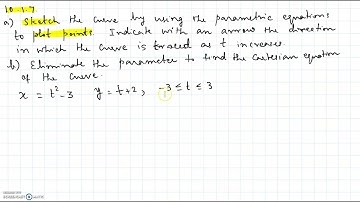 10.1.7
a) Sketch the curve by using the parametric equations
to plot points. Indicate with an arrow the direction
in which the curve is traced as t increases.
b) Eliminate the parameter to find the Cartesian equation
of the curve.
x = t²-3 y = t+2, -3 ≤ t ≤ 3